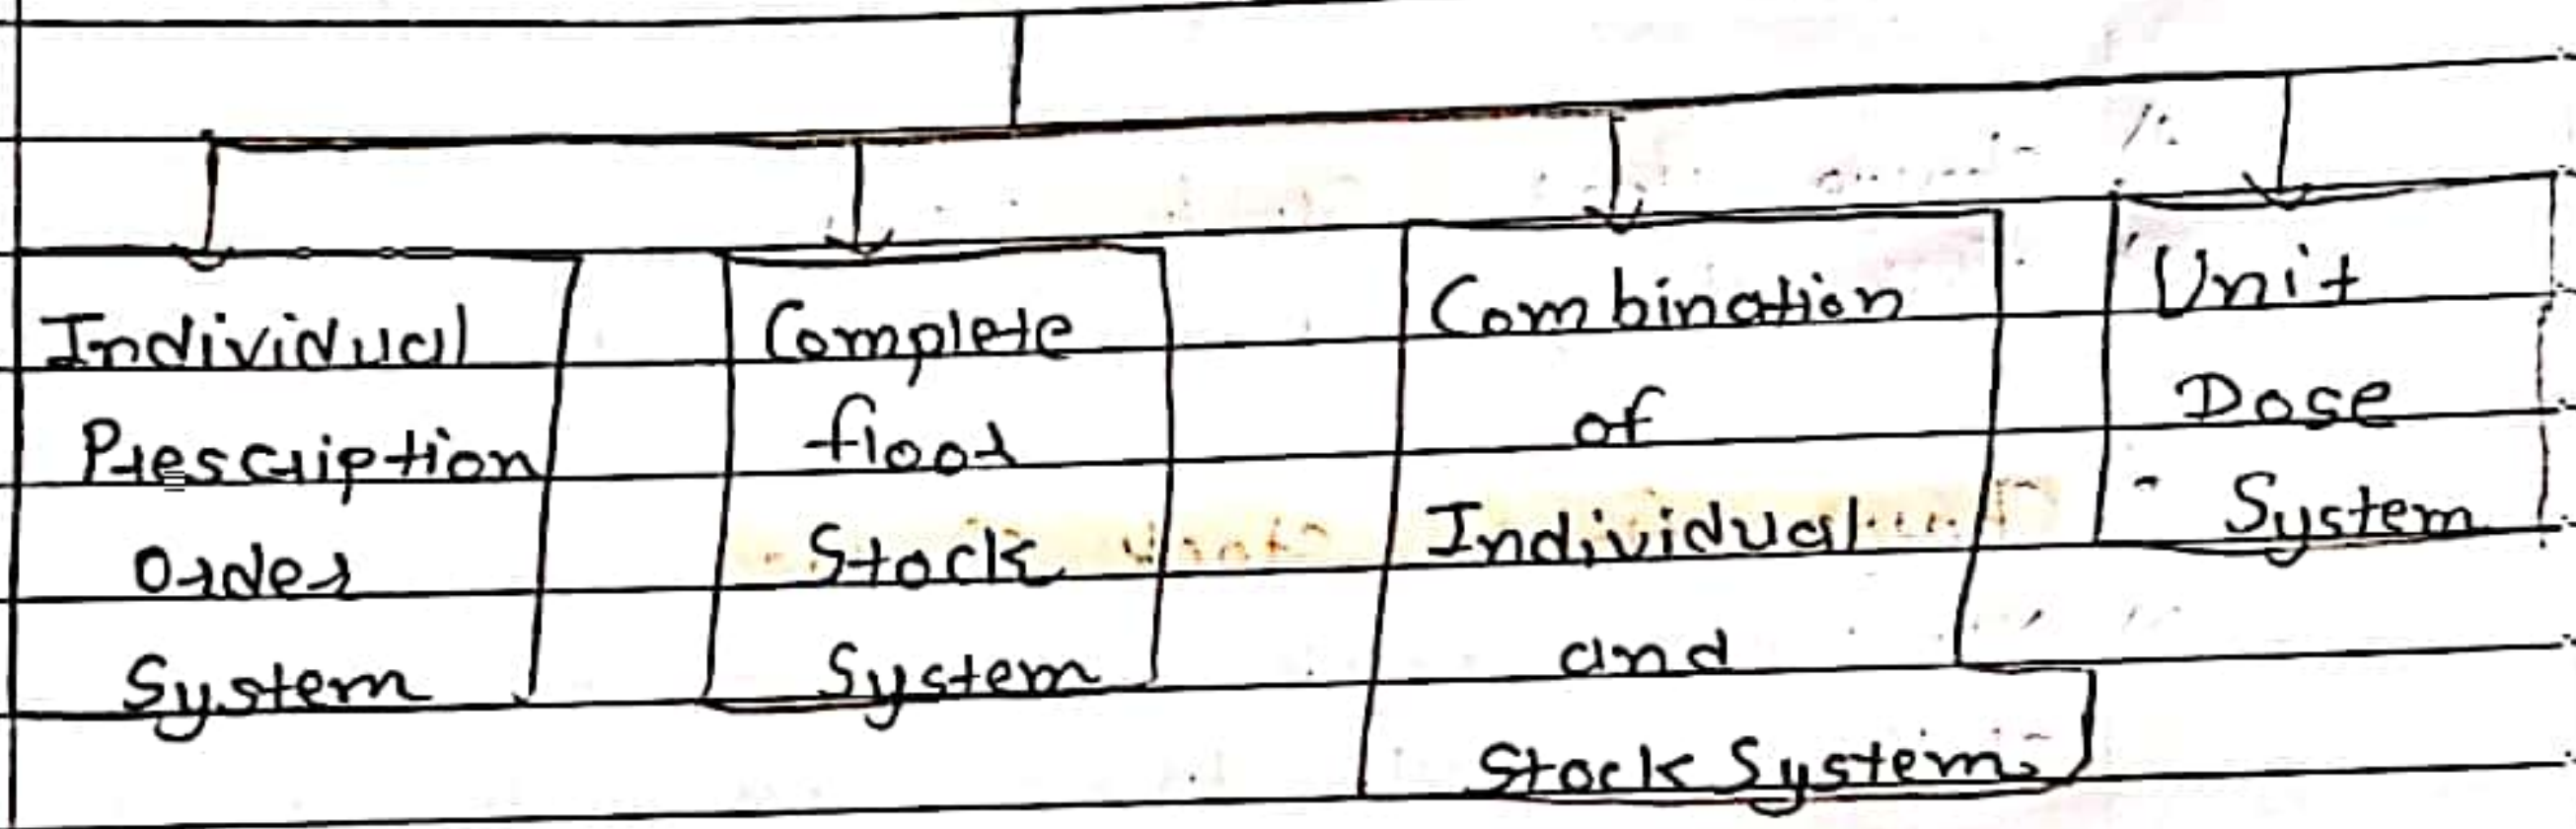 Individual
Prescription
Order
System
Complete
floor
Stock
System
Combination
of
Individual
and
Stock System.
Unit
Dose
System